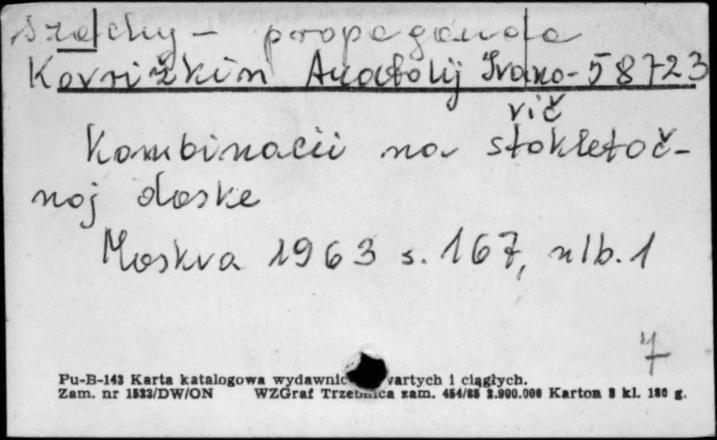 szachy - propaganda
Kovrižkin Anatolij Ivano- 58723
vič
Kombinacii na stokletoč-
noj doske
Moskva 1963 s. 167, nlb. 1
7
Pu-B-143 Karta katalogowa wydawnic wartych i ciągłych.
Zam. nr 1523/DW/ON WZGraf Trzebnica zam. 454/85 2.900.000 Karton kl. 180 g.